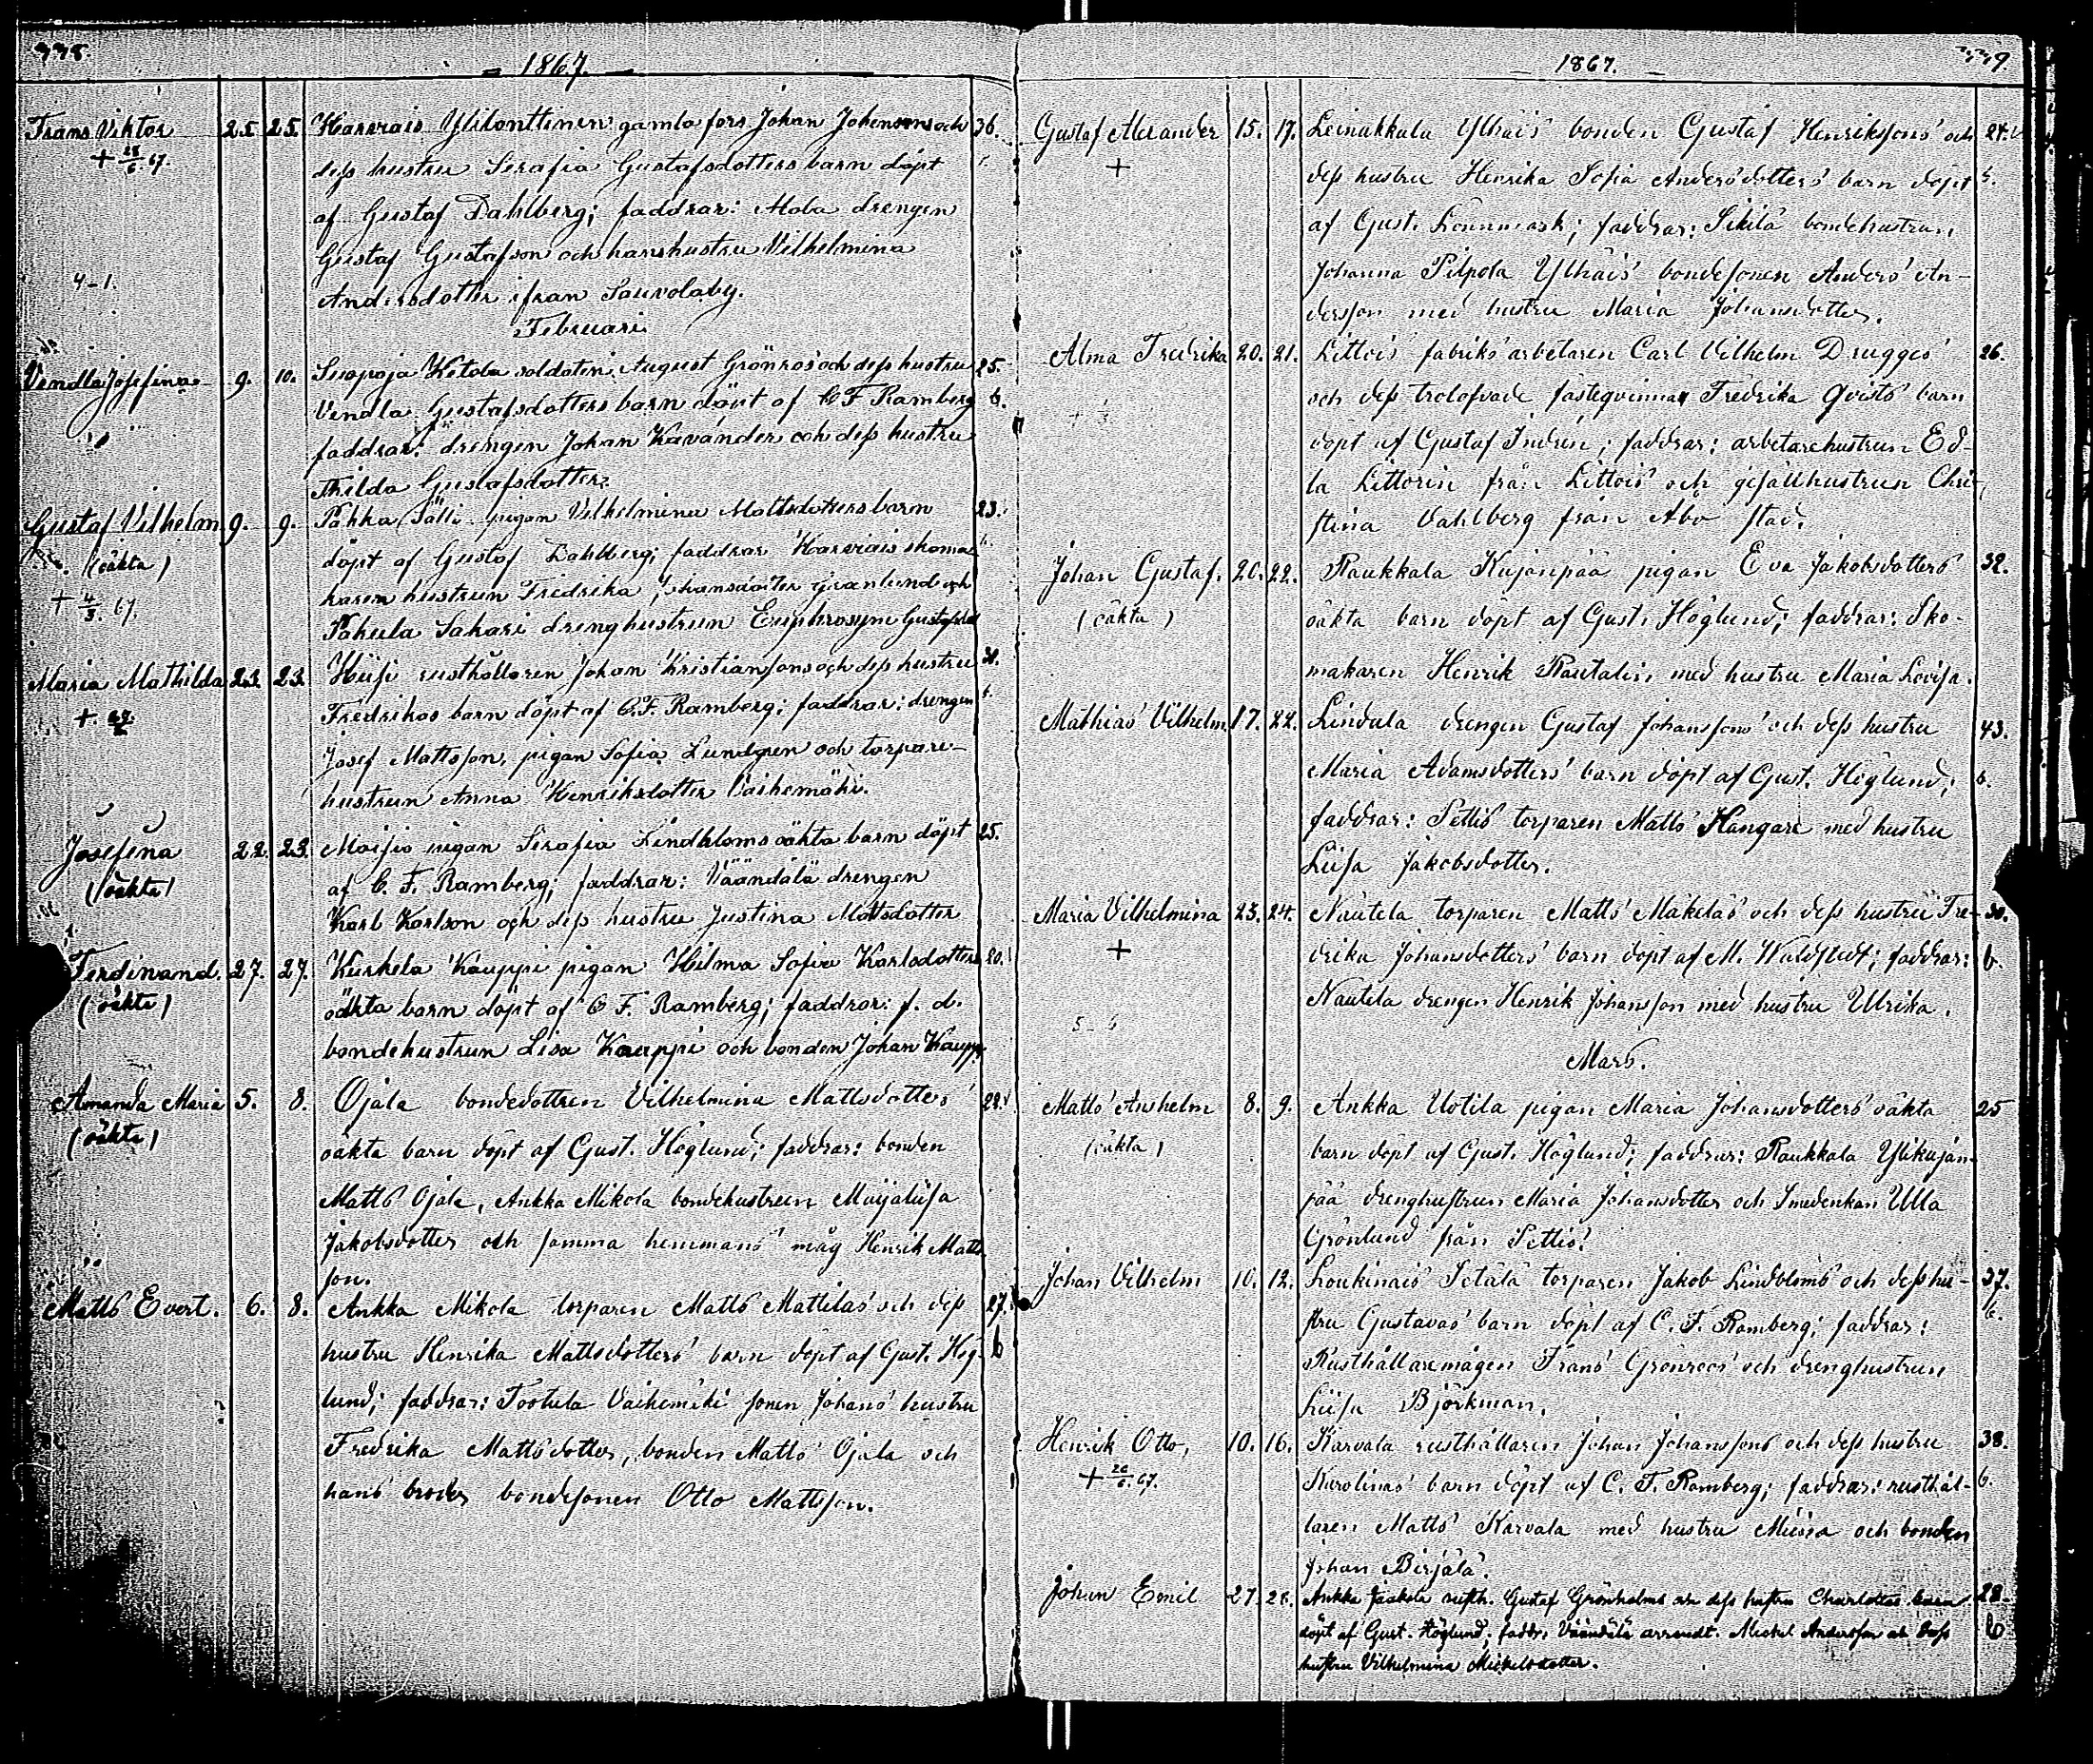 775.
1867.
Frans Viktor 25. 25. Harvais Ylilonttinen gamla fors Johan Johansons och 36.
+ 28/6. 67. dess hustru Serafia Gustafsdotters barn döpt
af Gustaf Dahlberg; faddrar: drengen
Gustaf Gustafson och hans hustru Vilhelmina
4-1. Andersdotter ifran Sauvolaby.
Februari
Vendla Josefina 9. 10. Suopoja Ketola soldaten August Grönros och dess hustru 25.
Vendla Gustafsdotters barn döpt af C F Ramberg 6.
faddrar: drengen Johan Kavander och dess hustru
Thilda Gustafsdotter.
Gustaf Vilhelm 9. 9. Pahka Sälli pigan Vilhelmina Mattsdotters barn 23.
(oäkta) döpt af Gustaf Dahlberg; faddrar Harvais skoma
+ 4/3. 67. karen hustrun Fredrika Johansdotter Granlund och
Pahula Sakari drenghustrun Euphrosyne Gustafsd
Maria Mathilda 23. 23. Hiisi rusthållaren Johan Kristiansons och dess hustru 30.
+ Fredrikas barn döpt af C.F. Ramberg; faddrar: drengen 6.
Josef Mattsson, pigan Sofia Lundgren och torpare-
hustrun Anna Henriksdotter Vaihemäki.
Josefina 22. 23. Moisio pigan Serafia Lindbloms oäkta barn döpt 25.
(oäkta) af C. F. Ramberg; faddrar: Väändälä drengen
Karl Karlson och dess hustru Justina Mattsdotter
Ferdinand. 27. 27. Kurkela Kauppi pigan Hilma Sofia Karlsdotters 20.
(oäkta) oäkta barn döpt af C F. Ramberg; faddrar: f. d.
bondehustrun Lisa Kauppi och bonden Johan Kauppi
Amanda Maria 5. 8. Ojala bondedottren Vilhelmina Mattsdotters 28.
(oäkta) oäkta barn döpt af Gust. Höglund; faddrar: bonden
Matts Ojala, Ankka Mikola bondehustrun Maijaliisa
Jakobsdotter och samma hemmans måg Henrik Matts
son.
Matts Evert. 6. 8. Ankka Mikola torparen Matts Mattilas och dess 27.
hustru Henrika Mattsdotters barn döpt af Gust. Hög- 6
lund; faddrar: Tootula Vaihemäki sonen Johans hustru
Fredrika Mattsdotter, bonden Matts Ojala och
hans broder bondesonen Otto Mattsson.
779.
1867.
Gustaf Alexander 15. 17. Leinakkala Ylhäis bonden Gustaf Henrikssons och 24.
+ dess hustru Henrika Sofia Andersdotters barn döpt 6.
af Gust. Lönnmark; faddrar: Sikilä bondehustrun
Johanna Pilpola Ylhäis bondesonen Anders An-
dersson med hustru Maria Johansdotter.
Alma Fredrika 20. 21. Littois fabriks arbetaren Carl Vilhelm Drugges 26.
och dess trolofvade fästeqvinnan Fredrika Qvists barn
döpt af Gustaf Indrén; faddrar: arbetarehustrun Ed-
la Littorin från Littois och gesällhustrun Chri-
stina Vahlberg från Åbo stad.
Johan Gustaf. 20. 22. Raukkala Kujanpää pigan Eva Jakobsdotters 32.
(oäkta) oäkta barn döpt af Gust. Höglund; faddrar: Sko-
makaren Henrik Rautalin med hustru Maria Lovisa.
Mathias Vilhelm. 17. 22. Lindula drengen Gustaf Johanssons och dess hustru 43.
Maria Adamsdotters barn döpt af Gust. Höglund; 6.
faddrar: Pettis torparen Matts Hangare med hustru
Liisa Jakobsdotter.
Maria Vilhelmina 23. 24. Nautela torparen Matts Mäkeläs och dess hustru Fre- 30.
+ drika Johansdotters barn döpt af M. Waldstedt; faddrar: 6.
Nautela drengen Henrik Johansson med hustru Ulrika.
5-6
Mars.
Matts Anshelm 8. 9. Ankka Uotila pigan Maria Johansdotters oäkta 25
(oäkta) barn döpt af Gust. Höglund; faddrar: Raukkala Ylikujan-
pää drenghustrun Maria Johansdotter och Smedenkan Ulla
Grönlund från Pettis.
Johan Vilhelm 10. 12. Loukinais Setälä torparen Jakob Lindbloms och dess hu- 37.
stru Gustavas barn döpt af C. F. Ramberg; faddrar: 6.
Rusthållaremågen Frans Grönroos och drenghustrun
Liisa Björkman.
Henrik Otto, 10. 16. Karvala rusthållaren Johan Johanssons och dess hustru 38.
+ 20/6. 67. Karolinas barn döpt af C. F. Ramberg; faddrar: rusthål- 6.
laren Matts Karvala med hustru Miina och bonden
Johan Birjälä.
Johan Emil 27. 28. Ankka Jaakola rusth. Gustaf Grönholms och dess hustru Charlottas barn 28.
döpt af Gust. Höglund; faddr. Väändälä arrendt. Mickel Andersson och dess 6
hustru Vilhelmina Mickelsdotter.